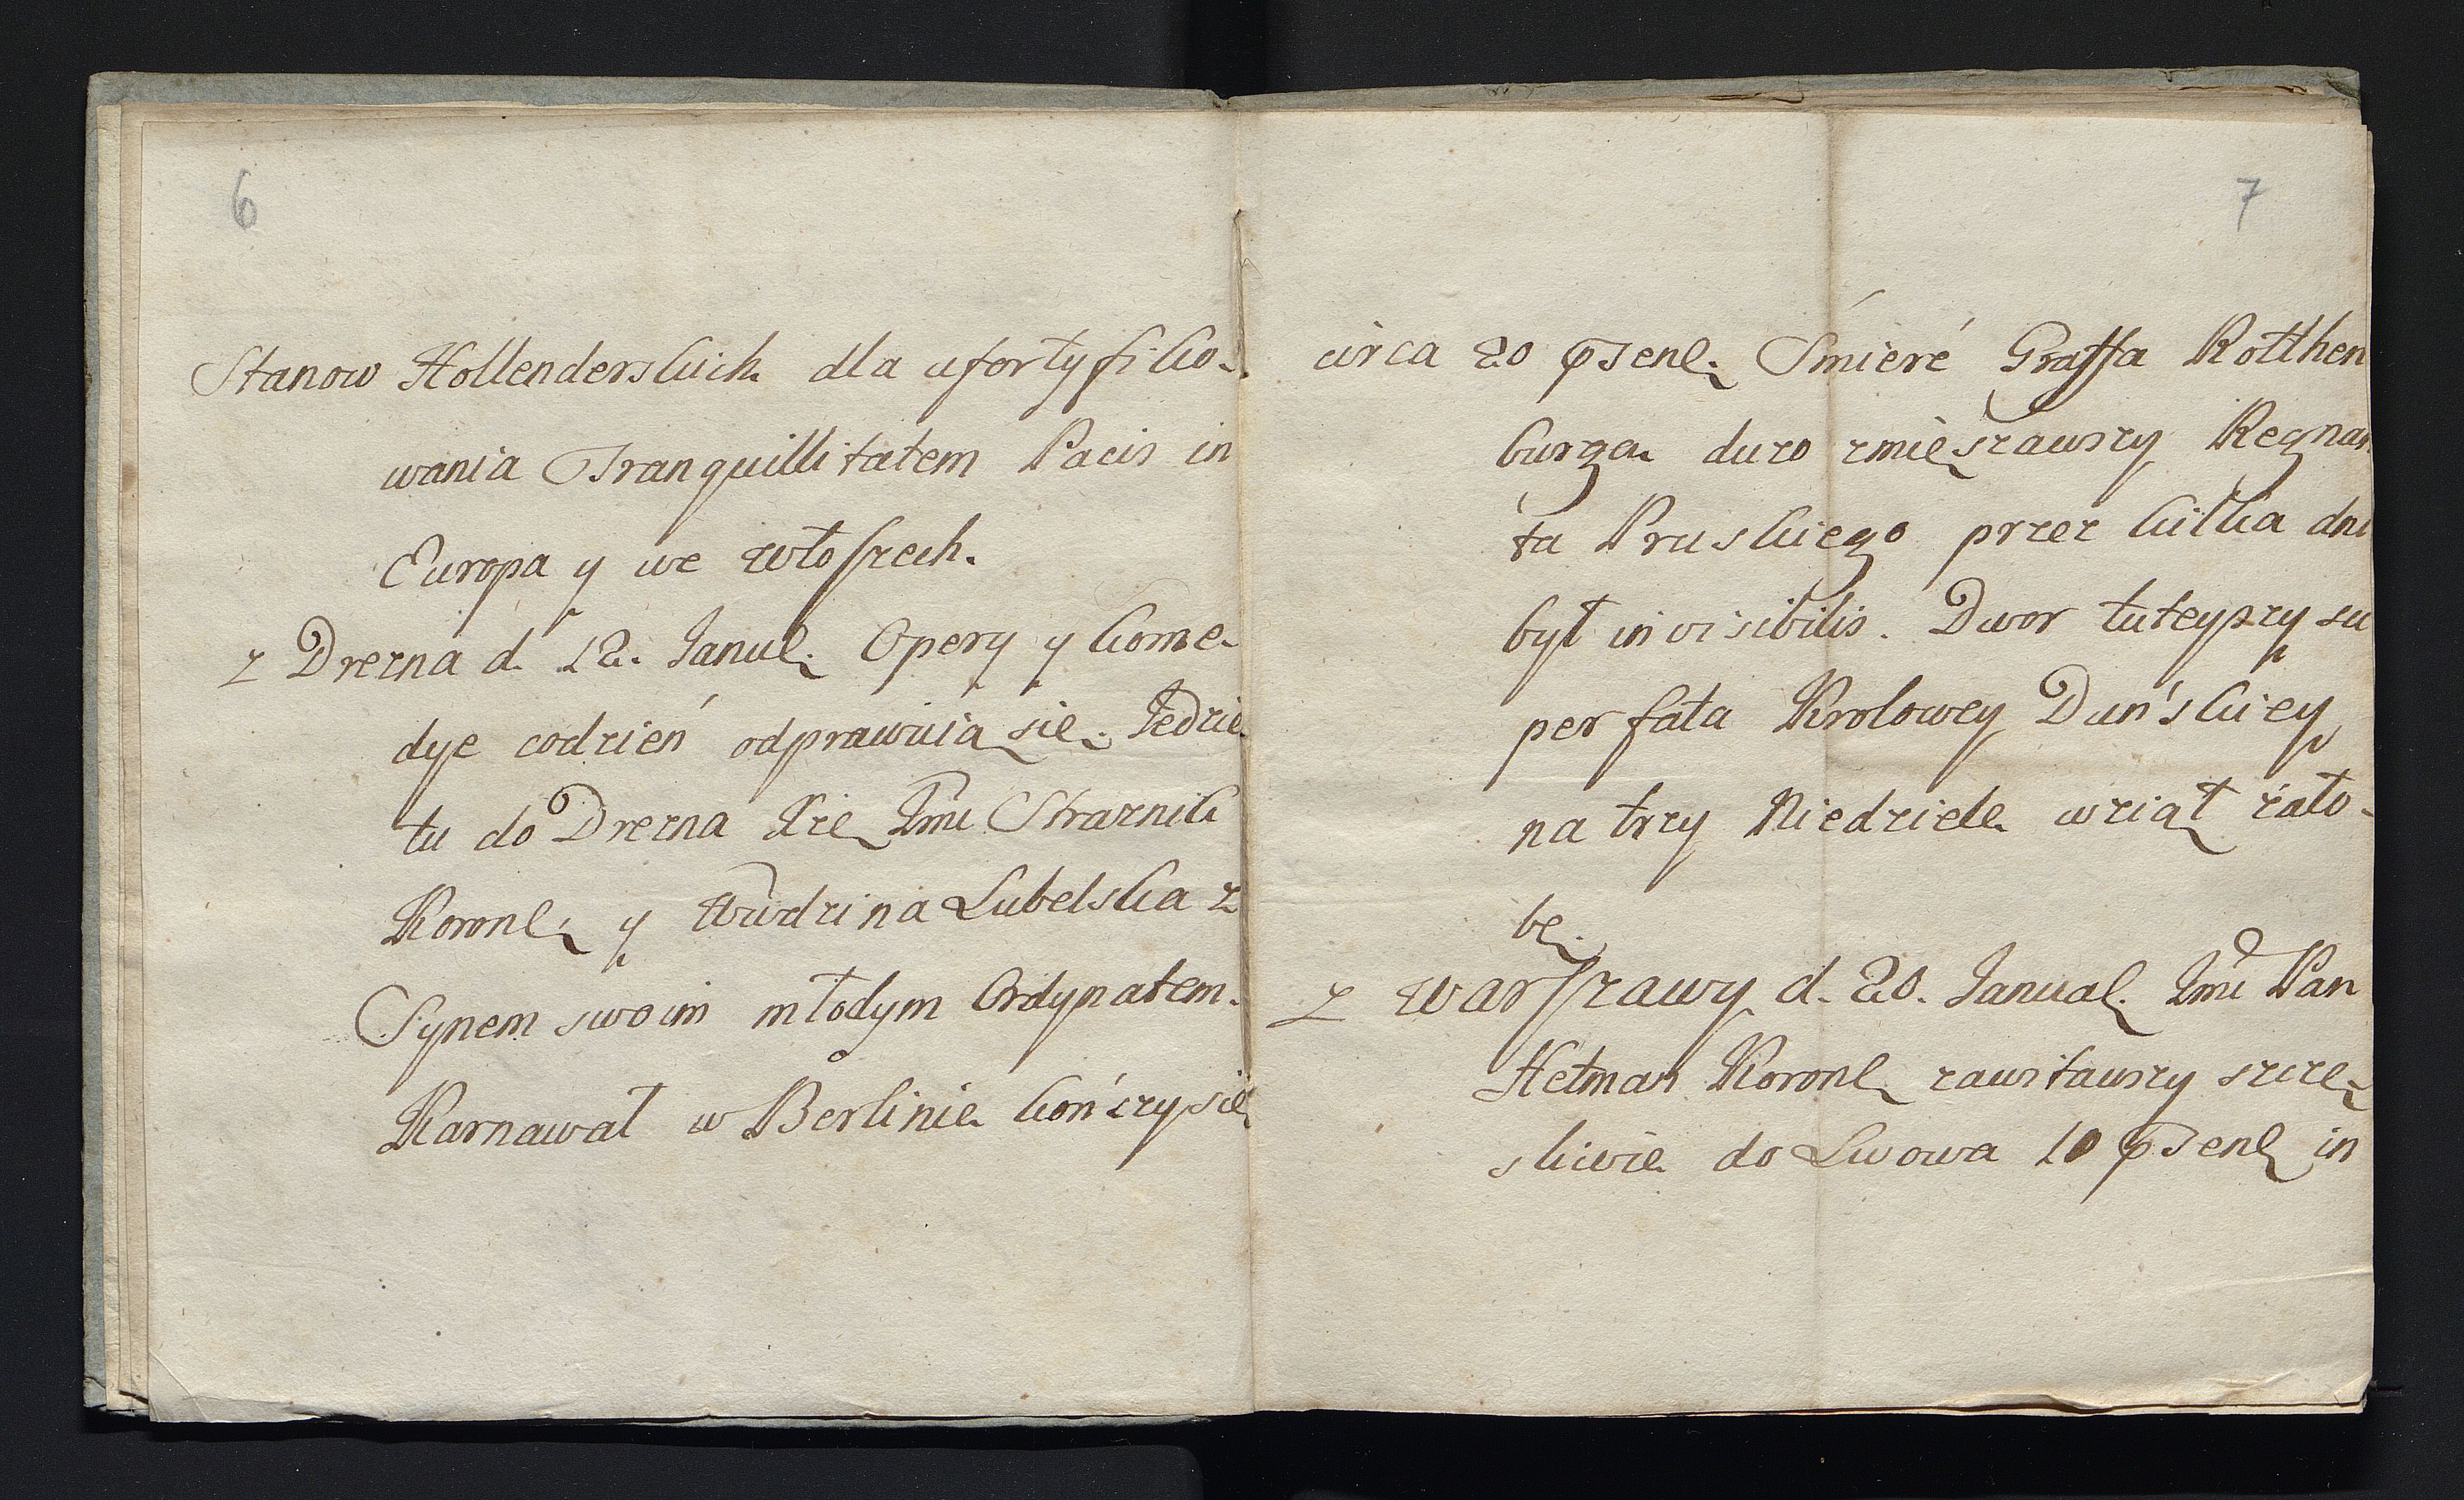 6
Stanow Hollenderskich dla ufortyfiko-
wania Tranquillitatem Pacis in
Europa y we Włoszech.
z Drezna d. 12. Janul. Opery y kome-
dye codzień odprawuią się. Jedzie
tu do Drezna Xże Jmć Straznik
Koronl. y Wwdzina Lubelska z
Synem swoim młodym Ordynatem.
Karnawał w Berlinie kończy się
7
circa 20 psenl. Śmierć Graffa Rotthen
burga duzo zmięszawszy Regnan
ta Pruskiego przez kilka dni
był invisibilis. Dwor tuteyszy su
per fata Krolowey Duńskiey
na trzy Niedziele wziął żało-
bę.
z Warszawy d. 20. Janual. Jmć Pan
Hetman Koronl zawitawszy szczę-
sliwie do Lwowa 10 psenl in